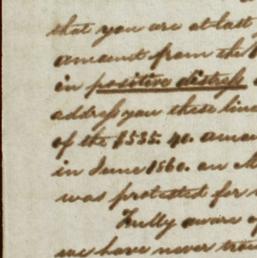 that you are at last
amount from the
in positive distress
address you these line
of the $535.40. amou
in June 1860. on M
was protested for
Fully aware of
we have never trou